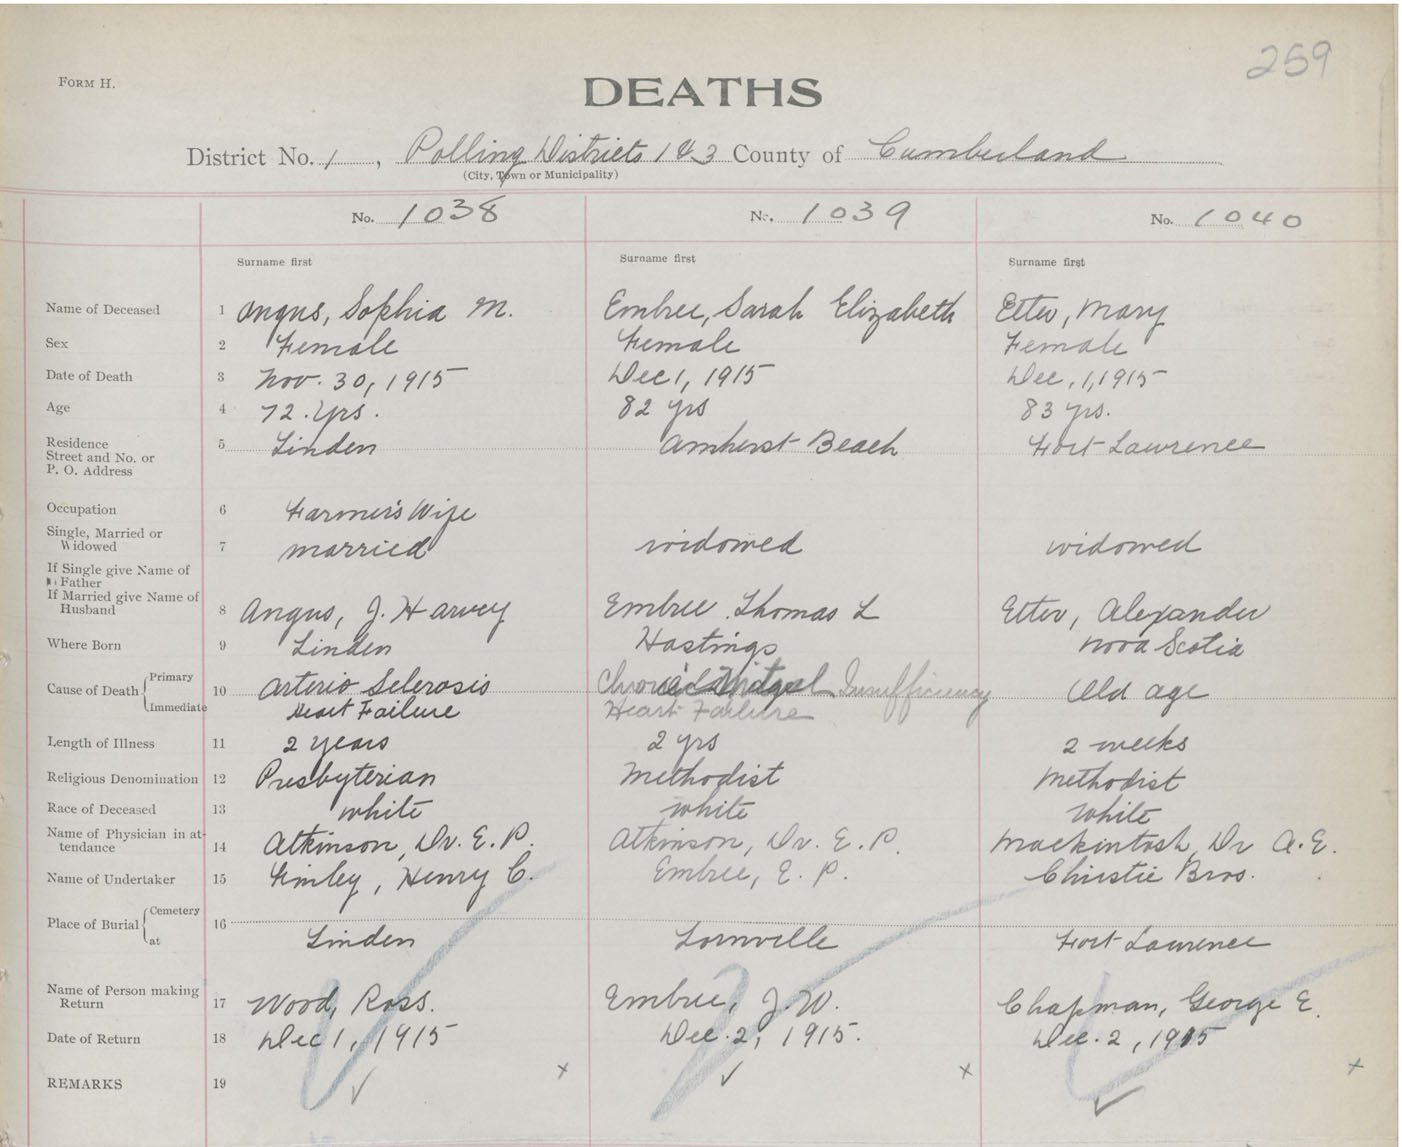 259
FORM H.
DEATHS
District No. 1, Polling Districts 1 & 3 County of Cumberland
(City, Town or Municipality)
No. 1038 No. 1039 No. 1040
Surname first Surname first Surname first
Name of Deceased 1 Angus, Sophia M. Embree, Sarah Elizabeth Etter, Mary
Sex 2 Female Female Female
Date of Death 3 Nov. 30, 1915 Dec 1, 1915 Dec. 1, 1915
Age 4 72 Yrs. 82 yrs 83 yrs.
Residence
Street and No. or
P. O. Address 5 Linden Amherst Beach Fort Lawrence
Occupation 6 Farmer's Wife
Single, Married or
Widowed 7 married widowed widowed
If Single give Name of
Father
If Married give Name of
Husband 8 Angus, J. Harvey Embree. Thomas L Etter, Alexander
Where Born 9 Linden Hastings Nova Scotia
Cause of Death Primary 10 Arterio Sclerosis Chronic Mitral Insufficiency Old age
Immediate Heart Failure Heart Failure
Length of Illness 11 2 years 2 yrs 2 weeks
Religious Denomination 12 Presbyterian Methodist Methodist
Race of Deceased 13 white white White
Name of Physician in at-
tendance 14 Atkinson, Dr. E. P. Atkinson, Dr. E. P. Mackintosh, Dr A. E.
Name of Undertaker 15 Henry C. Embree, E. P. Christie Bros.
Place of Burial Cemetery 16
at Linden Lornville Fort Lawrence
Name of Person making
Return 17 Wood, Ross. Embree, J. W. Chapman, George E.
Date of Return 18 Dec 1, 1915 Dec. 2, 1915. Dec. 2, 1915
REMARKS 19